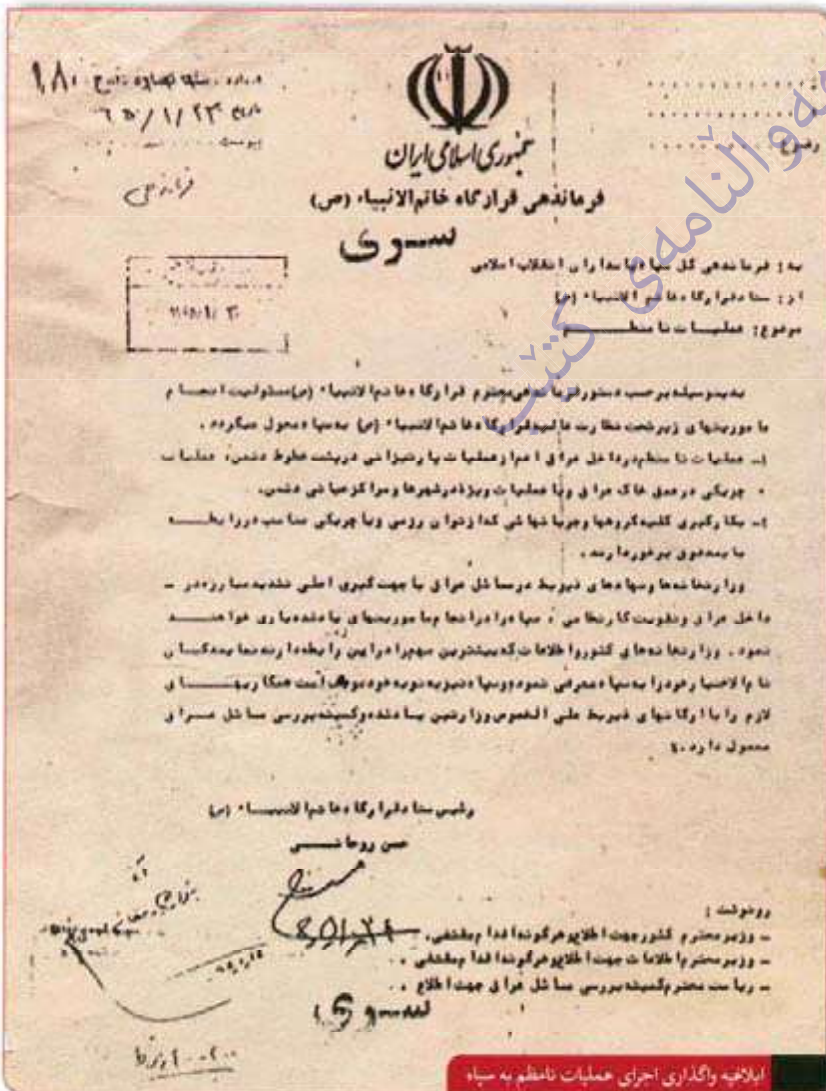 جمهوری اسلامی ایران
فرماندهی قرارگاه خاتم‌الانبیاء (ص)
سری
شماره
۹۸۰
تاریخ ۶۵/۱/۲۳
پیوست
فرماندهی
به: فرماندهی کل سپاه پاسداران انقلاب اسلامی
از: ستاد قرارگاه خاتم الانبیاء (ص)
موضوع: عملیات نامنظم
بدینوسیله برحسب دستور فرماندهی محترم قرارگاه خاتم الانبیاء (ص) مسئولیت انجام
ماموریتهای زیر تحت نظارت عالیه قرارگاه خاتم الانبیاء (ص) به سپاه محول میگردد.
۱- عملیات نامنظم در داخل عراق اعم از عملیات پارتیزانی در پشت خطوط دشمن، عملیات
چریکی در عمق خاک عراق و یا عملیات ویژه در شهرها و مراکز حیاتی دشمن.
۲- بکارگیری کلیه گروهها و جریانهائی که از توان رزمی و یا چریکی مناسب در رابطه
با بند فوق برخوردارند.
وزارتخانه‌ها و نهادهای ذیربط در مسائل عراق با جهت گیری اصلی تشدید مبارزه در
داخل عراق و تقویت کار نظامی، سپاه را در انجام ماموریتهای یاد شده یاری خواهند
نمود. وزارتخانه‌های کشور و اطلاعات که بیشترین سهم را در این رابطه دارند نمایندگان
تام الاختیار خود را به سپاه معرفی نموده و سپاه نیز به نوبه خود موظف است همکاریهای
لازم را با ارگانهای ذیربط علی الخصوص وزارتین یاد شده و کمیته بررسی مسائل عراق
معمول دارد.
رئیس ستاد قرارگاه خاتم الانبیاء (ص)
حسن روحانی
رونوشت:
- وزیر محترم کشور جهت اطلاع و هرگونه اقدام مقتضی.
- وزیر محترم اطلاعات جهت اطلاع و هرگونه اقدام مقتضی.
- ریاست محترم کمیته بررسی مسائل عراق جهت اطلاع.
سری
ابلاغیه واگذاری اجرای عملیات نامنظم به سپاه